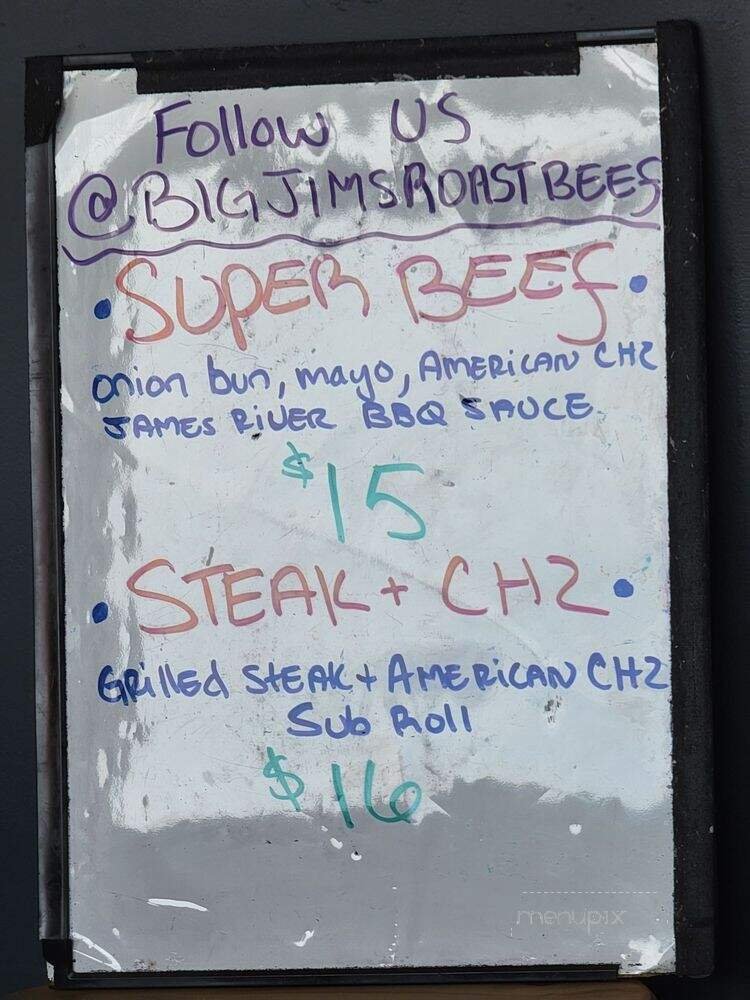 Follow US
@BIGJIMSROASTBEEF
• SUPER BEEF •
onion bun, mayo, AMERICAN CHZ
JAMES RIVER BBQ SAUCE
$15
• STEAK + CHZ •
GRilled STEAK + AMERICAN CHZ
Sub Roll
$16
menupix